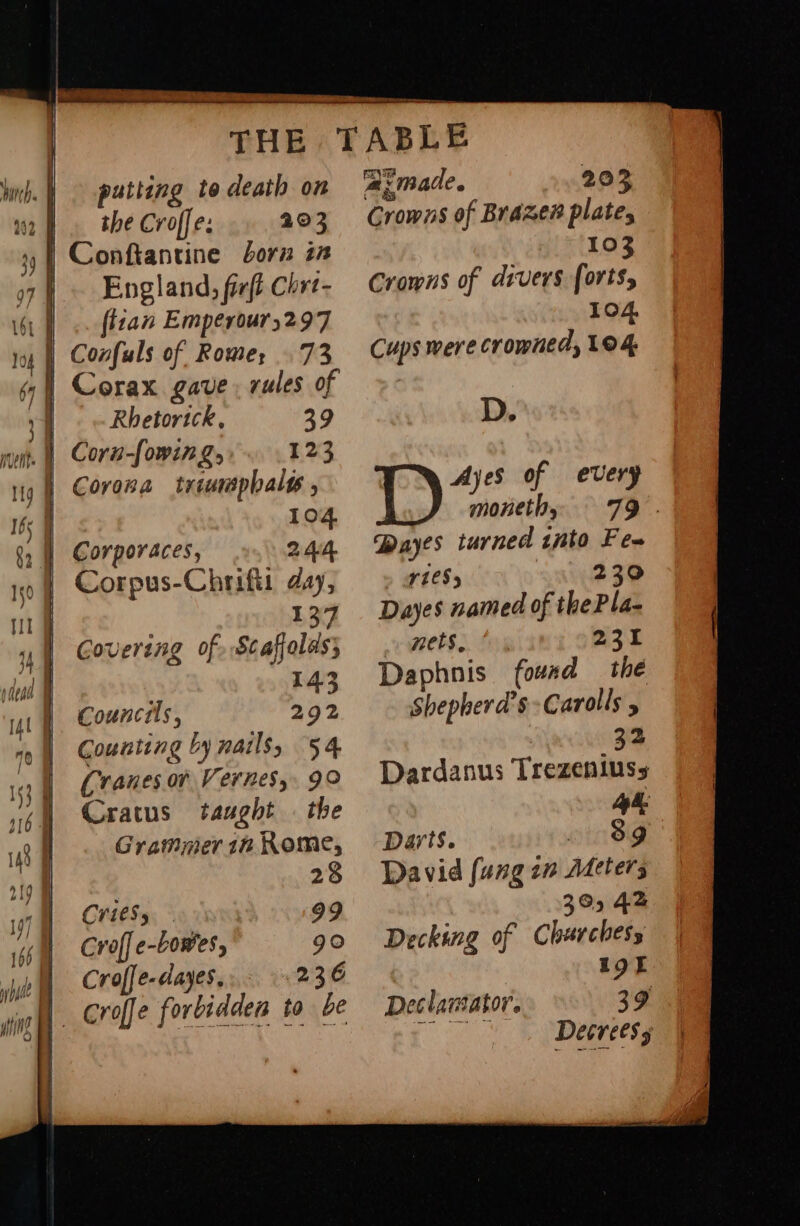 THE TABLE
putting to death on
the Croſſe: 203
Conſtantine born in
England, firſt Chri-
ſtian Emperour, 297
Conſuls of Rome, 73
Corax gave rules of
Rhetorick, 39
Corn-ſowing, 123
Corona triumphalis,
104
Corporaces, 244
Corpus-Chriſti day,
137
Covering of Scaffolds;
143
Councils, 292
Counting by nails, 54
Cranes or Vernes, 90
Cratus taught the
Grammer in Rome,
28
Cries, 99
Croſſe-bowes, 90
Croſſe-dayes, 236
Croſſe forbidden to be
made. 203
Crowns of Brazen plate,
103
Crowns of divers ſorts,
104
Cups were crowned, 104
D.
DAyes of every
moneth, 79
Dayes turned into Fe-
ries, 230
Dayes named of the Pla-
nets, 231
Daphnis found the
Shepherd's Carolls,
32
Dardanus Trezenius,
44
Darts. 89
David ſung in Meter,
30, 42
Decking of Churches,
191
Declamator. 39
Decrees,